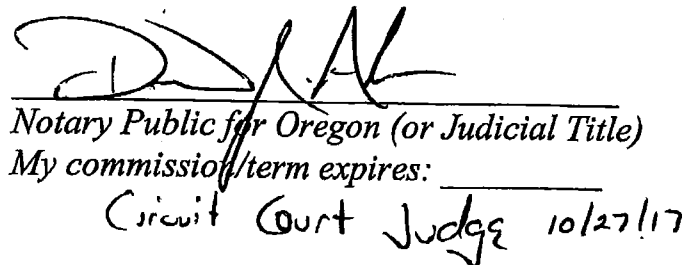 Notary Public for Oregon (or Judicial Title)
My commission/term expires: ___________
Circuit Court Judge 10/27/17